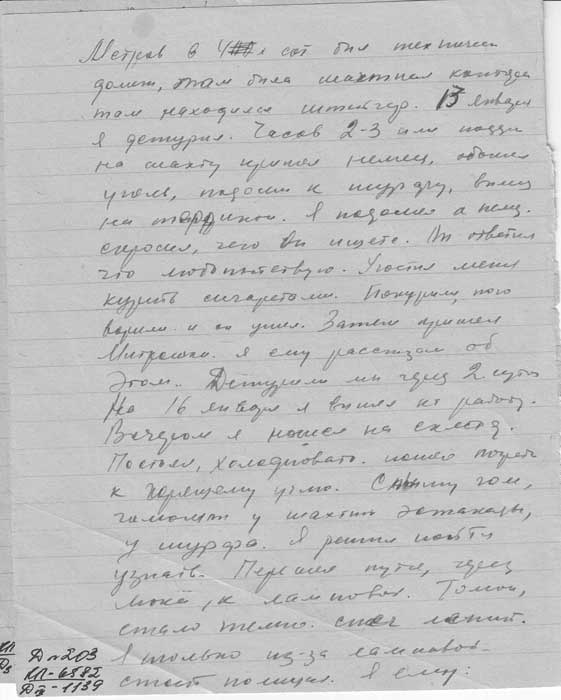 Метров в 4 сот был технический
домик, там была шахтная контора
там находился штейгер. 13 января
я дежурил. Часов 2-3 или позже
на шахту пришел немец, обошел
уголь, подошел к шурфу, вышел
на . Я подошел а немц.
спросил, чего Вы ищете. Он ответил
что любопытствую. Угостил меня
курить сигаретами. Покурили, пого
ворили и он ушел. Затем пришел
Митрошка. Я ему рассказал об
этом. Дежурили мы через 2 суток
На 16 января я вышел на работу.
Вечером я пошел на склад.
Постоял, холодновато. пошел погреть
к горящему углю. Слышу гом,
гомонят у шахтной эстакады,
у шурфа. Я решил пойти
узнать. Перешел пути, через
к ламповой. Темой,
стало темно. снег лепит.
Я только из-за ламповой
стоит полицай. Я ему:
Дп203
КП-6582
Дз-1139